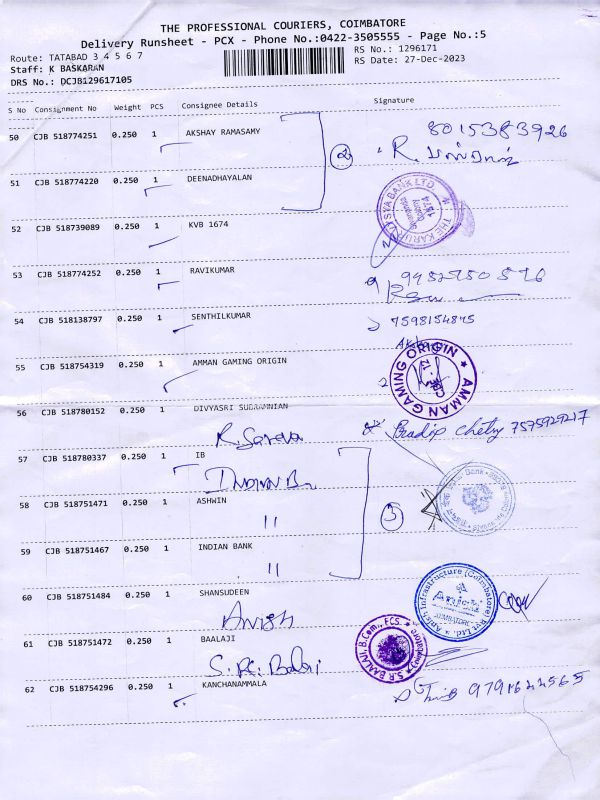 THE PROFESSIONAL COURIERS, COIMBATORE
Delivery Runsheet - PCX - Phone No.:0422-3505555 - Page No.:5
Route: TATABAD 3 4 5 6 7
RS No.: 1296171
Staff: K BASKARAN
RS Date: 27-Dec-2023
DRS No.: DCJB129617105
S No Consignment No Weight PCS Consignee Details Signature
50 CJB 518774251 0.250 1 AKSHAY RAMASAMY
8015383926
2 R.
51 CJB 518774220 0.250 1 DEENADHAYALAN
52 CJB 518739089 0.250 1 KVB 1674
THE KARUR VYSYA BANK LTD. 1674
53 CJB 518774252 0.250 1 RAVIKUMAR
54 CJB 518138797 0.250 1 SENTHILKUMAR
7598154845
55 CJB 518754319 0.250 1 AMMAN GAMING ORIGIN
AMMAN GAMING ORIGIN CBE - 12
56 CJB 518780152 0.250 1 DIVYASRI SUDRAMNIAN
Pradip Chetry 7575929217
57 CJB 518780337 0.250 1 IB
58 CJB 518751471 0.250 1 ASHWIN
"
3
59 CJB 518751467 0.250 1 INDIAN BANK
"
60 CJB 518751484 0.250 1 SHANSUDEEN
Anish
Anish Infrastructure (Coimbatore) Pvt. Ltd. COIMBATORE
61 CJB 518751472 0.250 1 BAALAJI
S.R. Balaji
S.R BAALAJI, B.Com., FCS.
62 CJB 518754296 0.250 1 KANCHANAMMALA